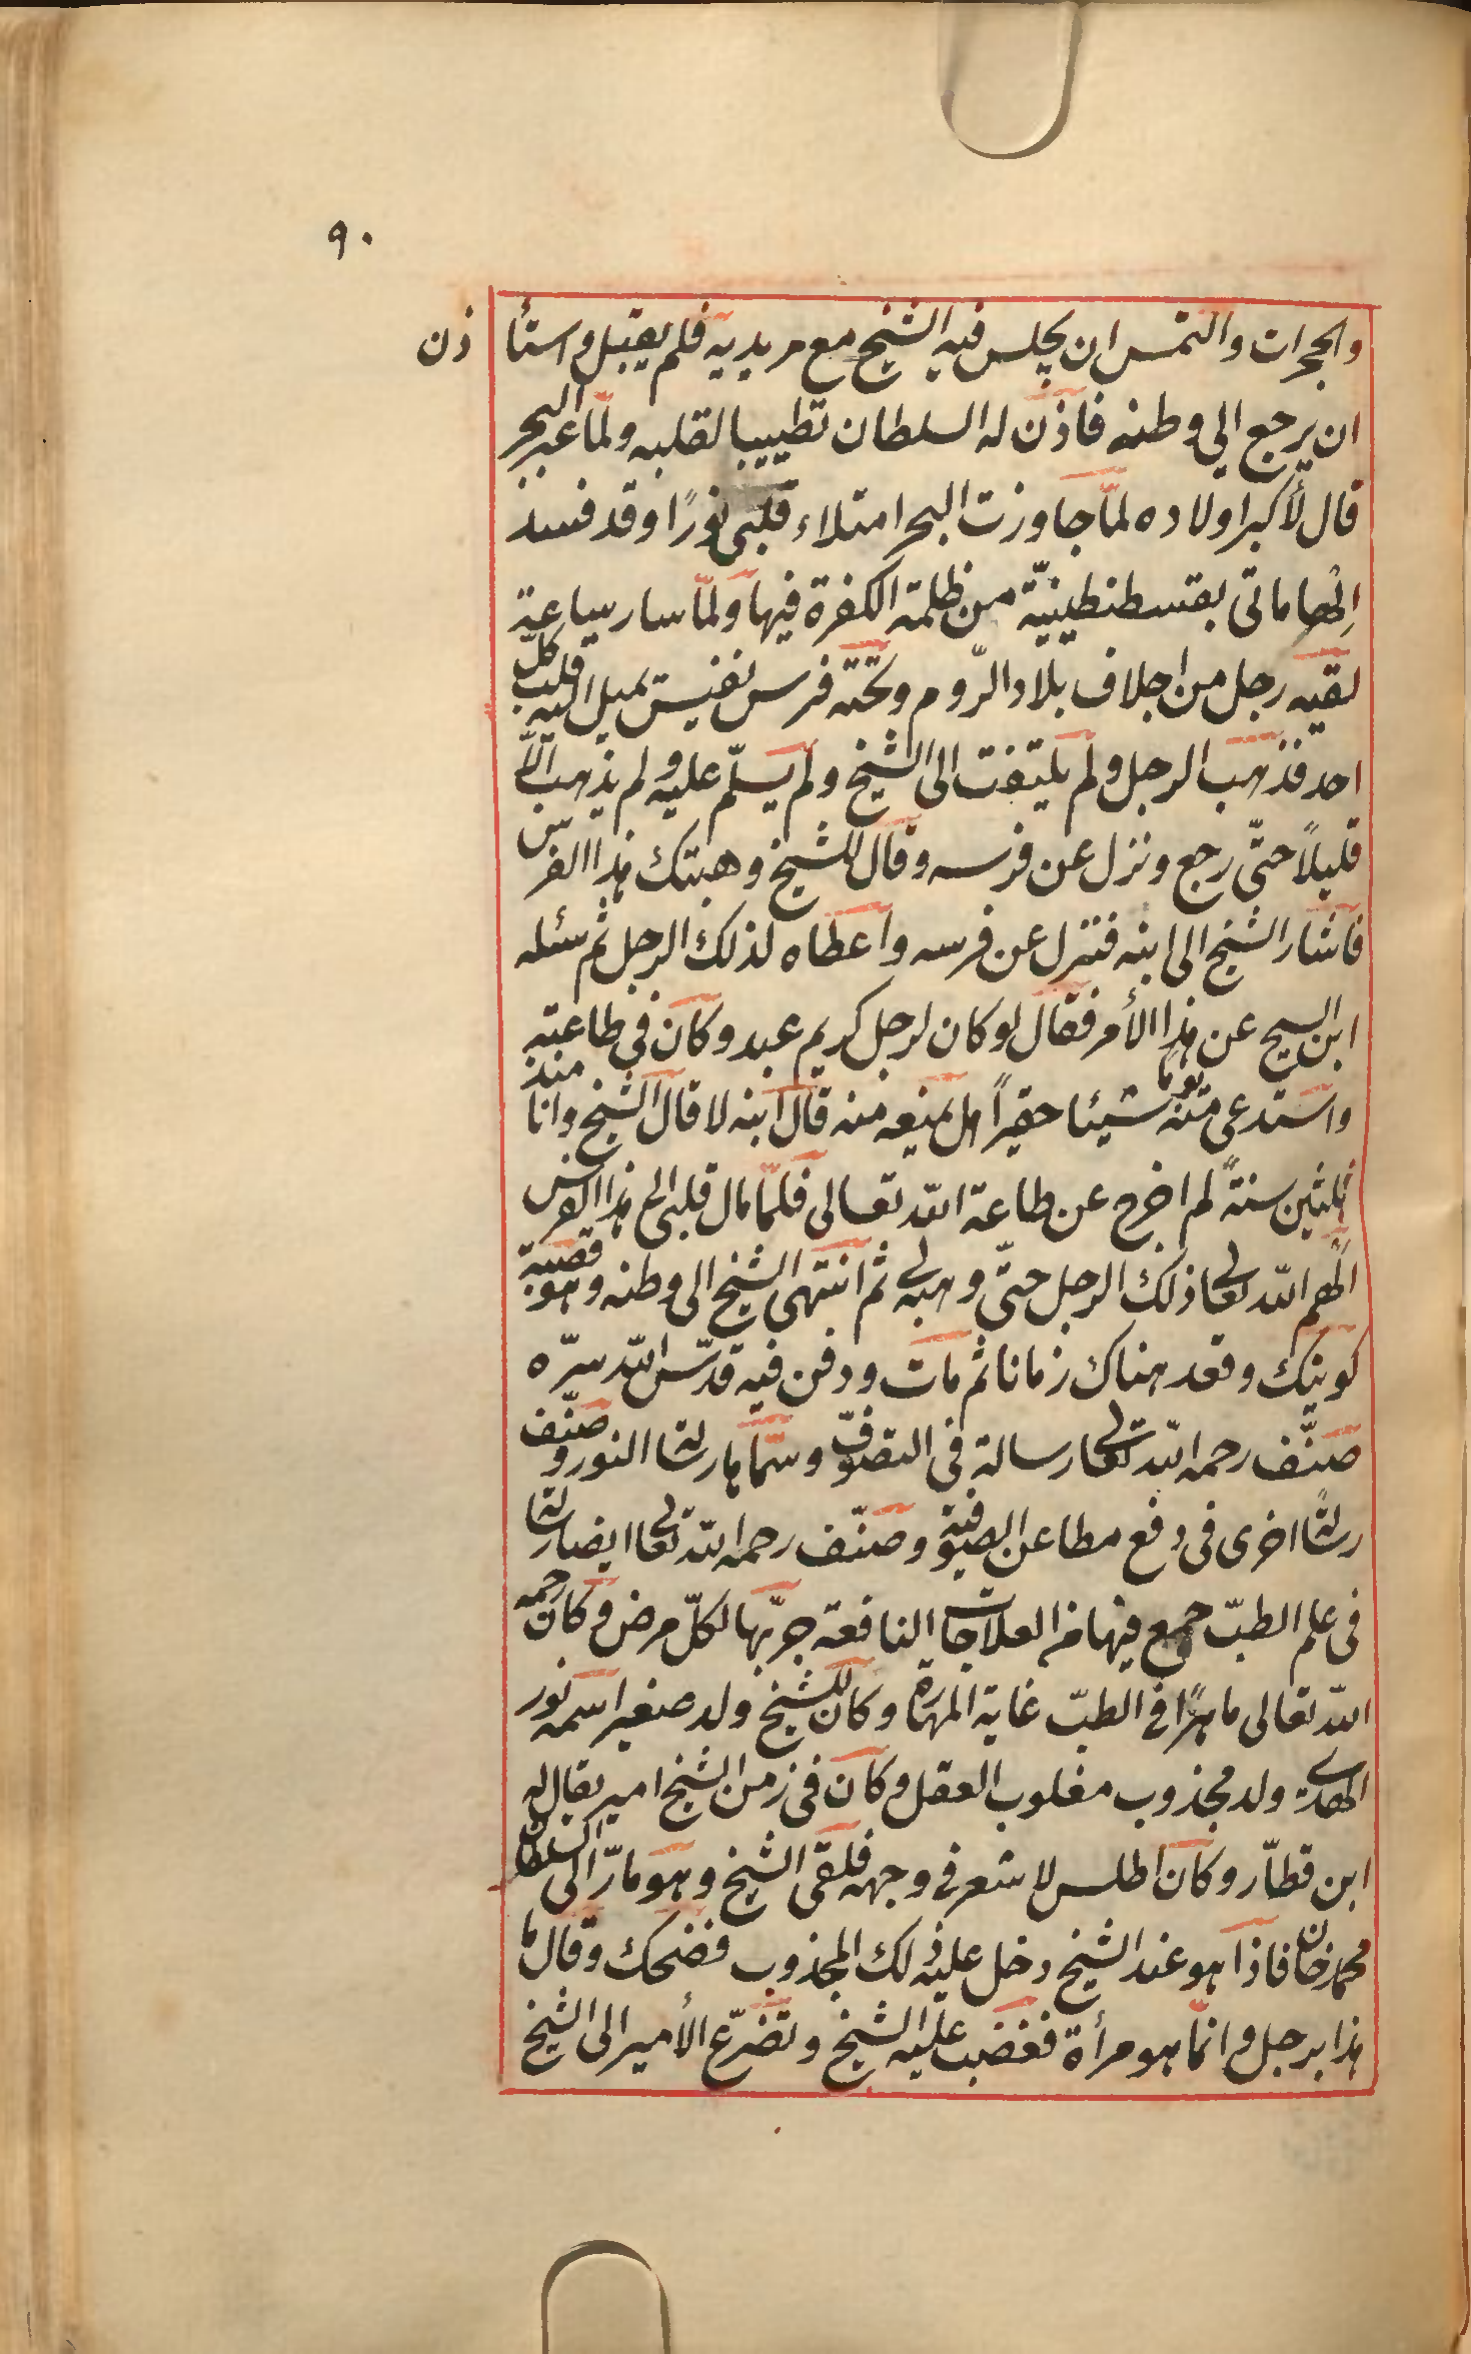 ٩٠
والحجرات والتمس ان يجلس فيه الشيخ مع مريديه فلم يقبل واستأ ذن
ان يرجع الى وطنه فاذن له السلطان تطييبا لقلبه ولمّا عبر البحر
قال لأكبر اولاده لمّا جاوزت البحر امتلاء قلبى نورًا وقد فسد
الهاماتى بقسطنطينيّة من ظلمة الكفرة فيها ولمّا سار ساعة
لقيه رجل من اجلاف بلاد الرّوم وتحته فرس نفيس يميل اليه قلب كلّ
احد فذهب الرجل ولم يلتفت الى الشيخ ولم يسلّم عليه ولم يذهب الّا
قليلاً حتّى رجع ونزل عن فرسه وقال للشيخ وهبتك هذا الفرس
فاشار الشيخ الى ابنه فنزل عن فرسه واعطاه لذلك الرجل ثم سئله
ابن الشيخ عن هذا الأمر فقال لو كان لرجل كريم عبد وكان فى طاعته
واستدعى منه يوما شيئا حقيراً هل يمنعه منه قال ابنه لا قال الشيخ وانا منذ
ثلثين سنةً لم اخرج عن طاعة الله تعالى فلمّا مال قلبى الى هذا الفرس
الهم الله تعالى ذلك الرجل حتّى وهبه لى ثم انتهى الشيخ الى وطنه وهو قصبة
كوينك وقعد هناك زمانا ثم مات ودفن فيه قدّس الله سرّه
صنّف رحمه الله تعالى رسالة فى التصوّف وسمّاها رسالة النور وصنّف
رسالة اخرى فى دفع مطاعن الصوفية وصنّف رحمه الله تعالى ايضا رسالة
فى علم الطبّ جمع فيها من العلاجات النافعة جرّبها لكلّ مرض وكان رحمه
الله تعالى ماهرًا فى الطبّ غاية المهارة وكان للشيخ ولد صغير اسمه نور
الهدى ولد مجذوب مغلوب العقل وكان فى زمن الشيخ امير يقال له
ابن قطّار وكان اطلس لا شعر فى وجهه فلقى الشيخ وهو مارّ الى السلطان
محمد خان فاذا هو عند الشيخ دخل عليه ذلك المجذوب فضحك وقال ما
هذا برجل وانّما هو مرأة فغضب عليه الشيخ وتضرّع الأمير الى الشيخ